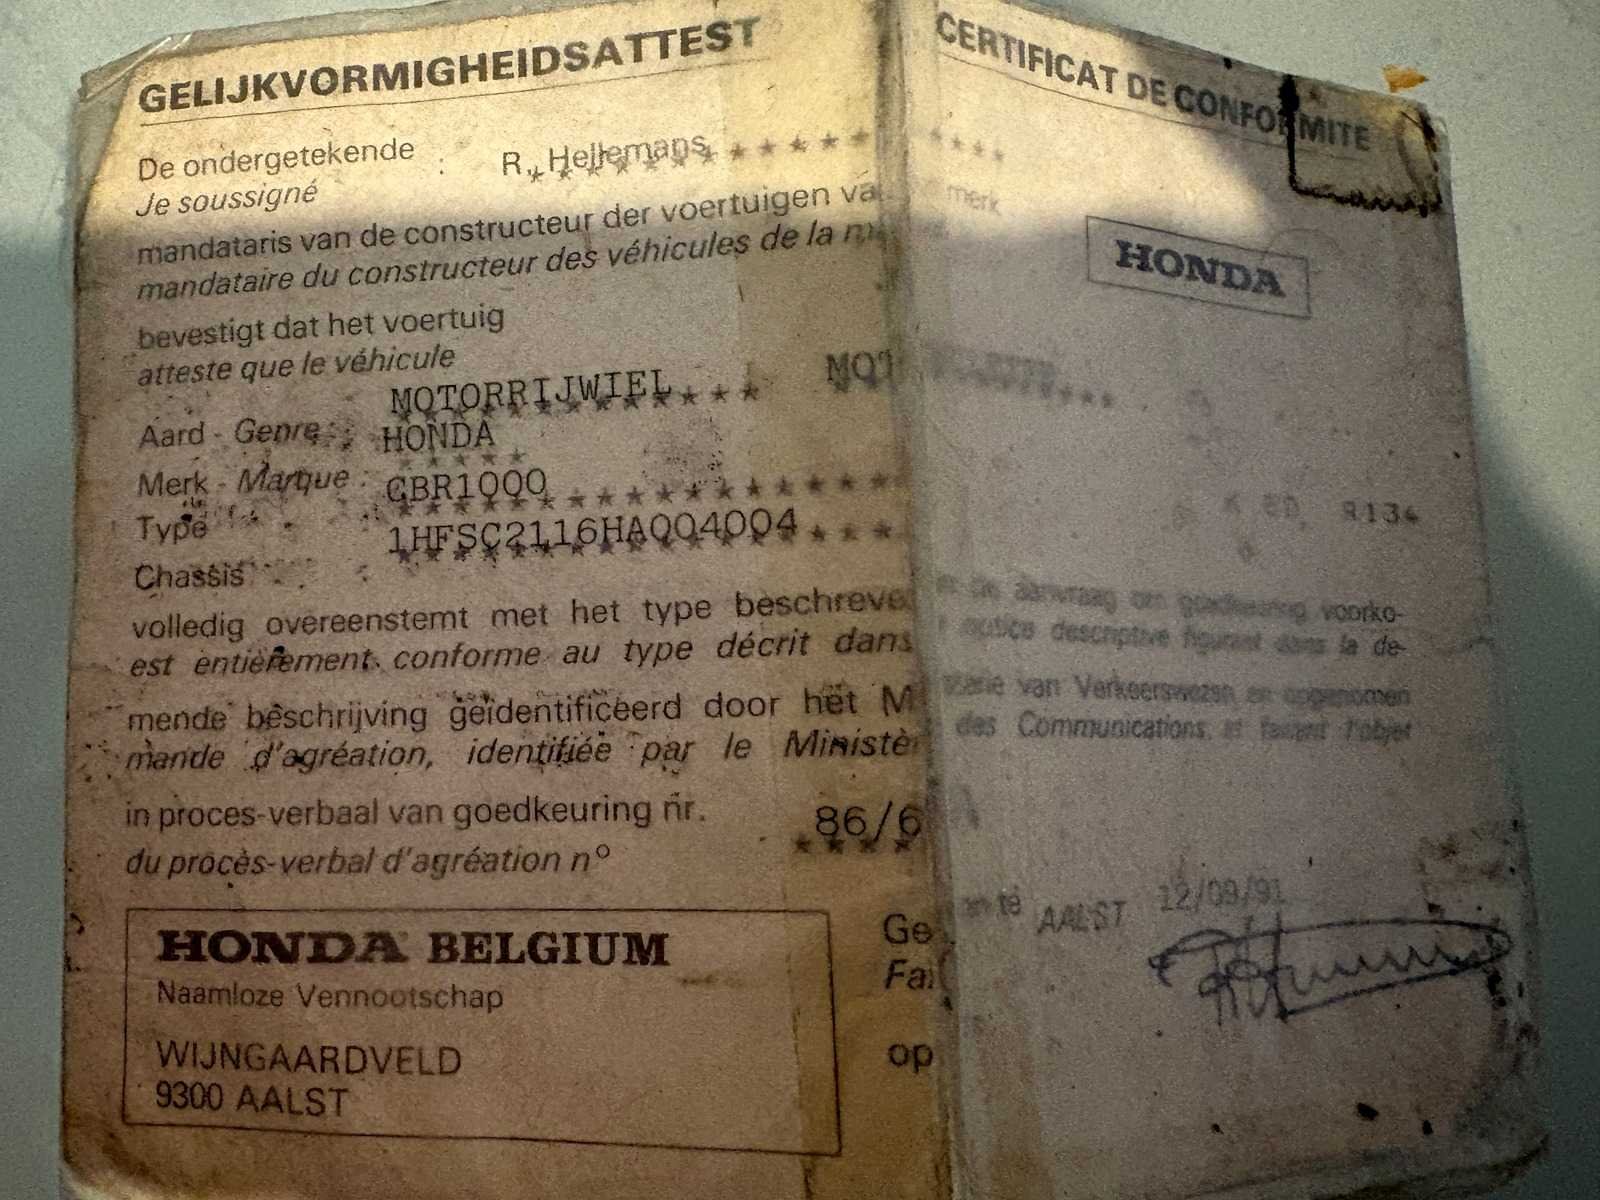 GELIJKVORMIGHEIDSATTEST
CERTIFICAT DE CONFORMITE
De ondergetekende : R. Hellemans
Je soussigné
mandataris van de constructeur der voertuigen va merk
mandataire du constructeur des véhicules de la m
HONDA
bevestigt dat het voertuig
atteste que le véhicule
MOTORRIJWIEL MOT
Aard - Genre : HONDA
Merk - Marque : CBR1000
Type 1HFSC2116HA004004
Chassis
volledig overeenstemt met het type beschreve de aanvraag om goedkeuring voorko-
est entièrement conforme au type décrit dans notice descriptive figurant dans la de-
mende beschrijving geïdentificeerd door het M van Verkeerswezen en opgenomen
mande d'agréation, identifiée par le Ministè des Communications et faisant l'objet
in proces-verbaal van goedkeuring nr. 86/6
du procès-verbal d'agréation n°
HONDA BELGIUM
Naamloze Vennootschap
WIJNGAARDVELD
9300 AALST
Ge te AALST 12/09/91
Fai
op